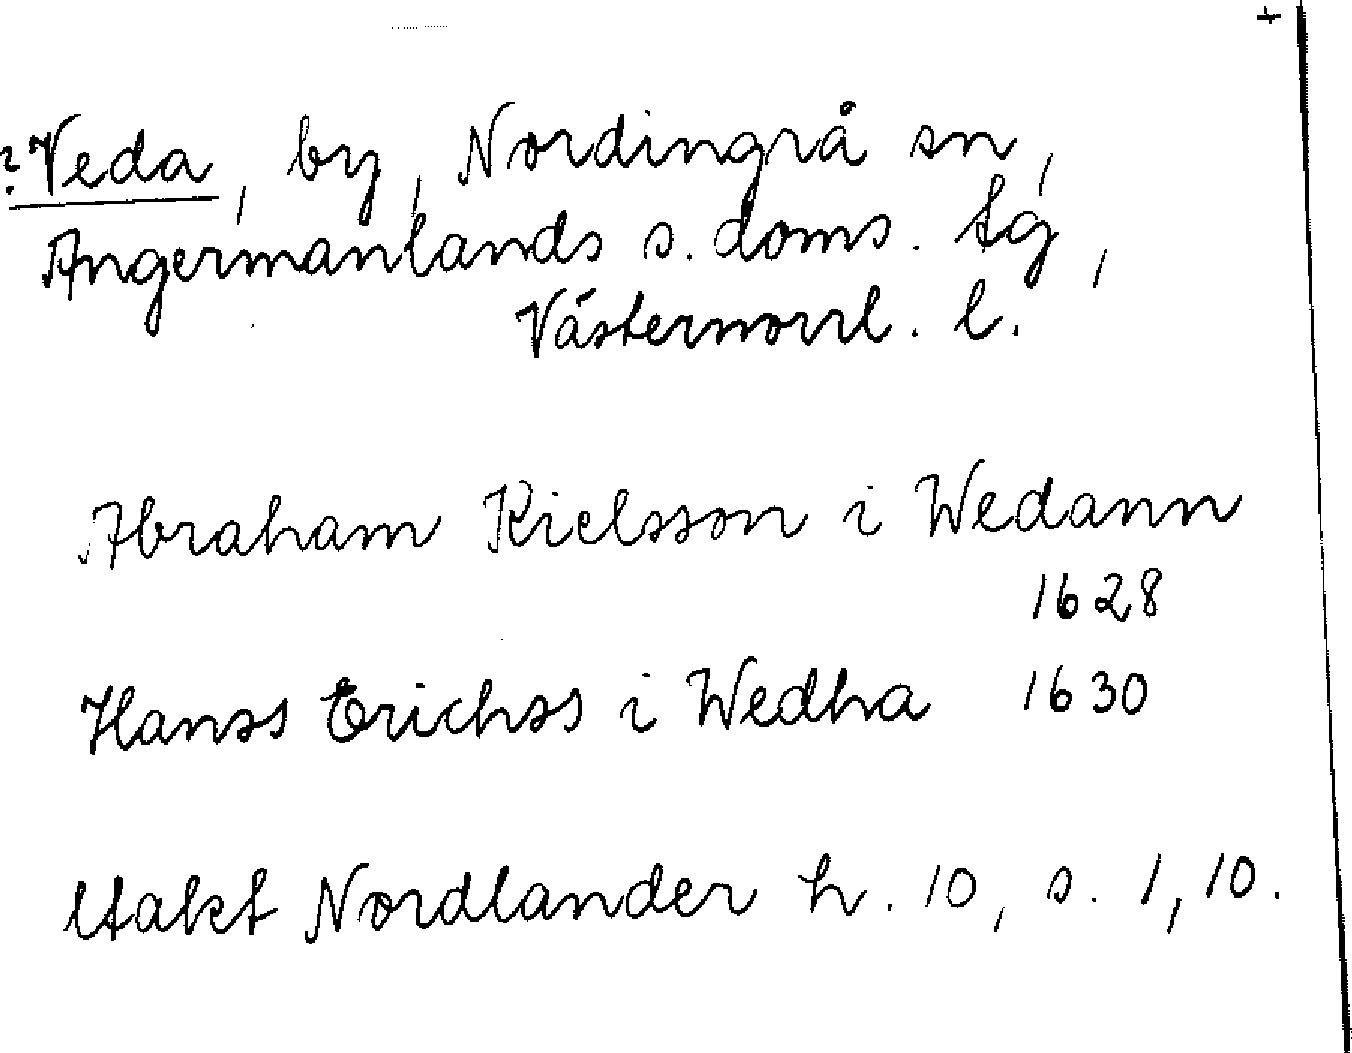 +
?Veda, by, Nordingrå sn,
Angermanlands s. doms. tg,
Västernorrl. l.
Abraham Kielsson i Wedann
1628
Hanss Erichss i Wedha 1630
Utakt Nordlander h. 10, s. 1, 10.